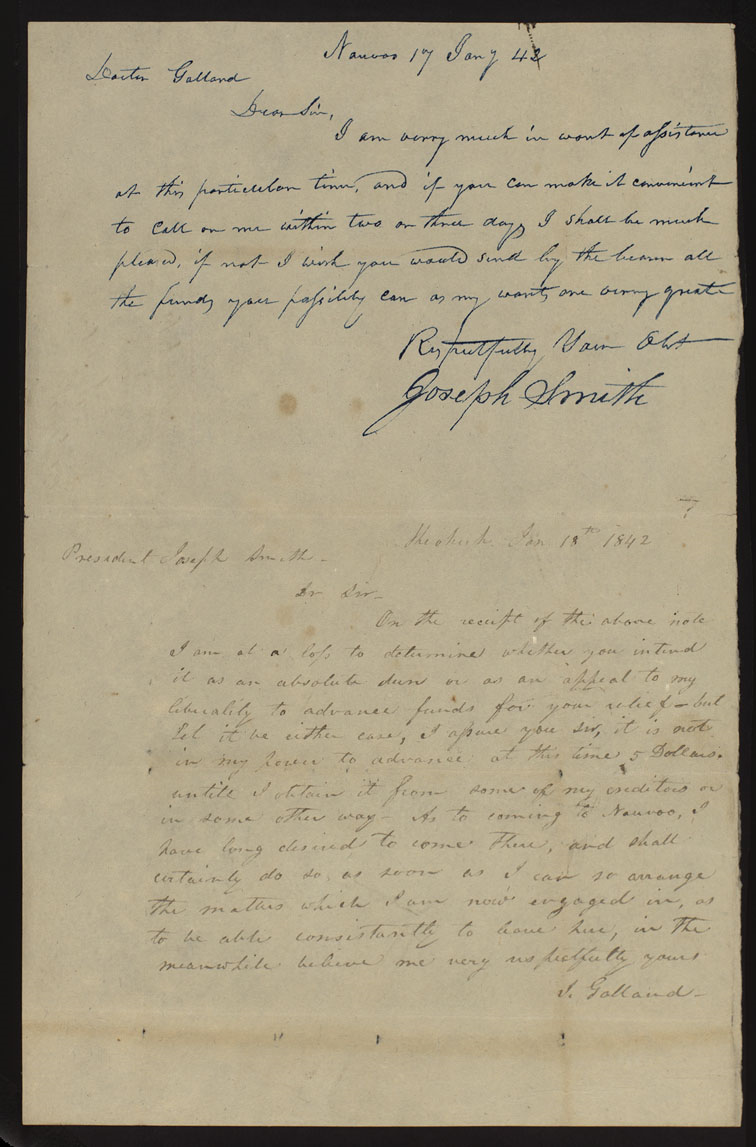 Nauvoo 17 Jany 42
Doctor Galland
Dear Sir,
I am verry much in want of assistance
at this particular time, and if you can make it convenient
to call on me within two or three days I shall be much
pleased, if not I wish you would send by the bearer all
the funds you possibily can as my wants are verry great
Respectfully Your Obt
Joseph Smith
Keokuk Jan 18th 1842
President Joseph Smith -
Dr Sir -
On the receipt of the above note
I am at a loss to determine whether you intend
it as an absolute dun or as an appeal to my
liberality to advance funds for your relief - but
let it be either case, I assure you sir, it is not
in my power to advance at this time 5 Dollars.
untill I obtain it from some of my creditors or
in some other way - As to coming to Nauvoo, I
have long desired to come there, and shall
certainly do so, as soon as I can so arrange
the matters which I am now engaged in, as
to be able consistantly to leave here, in the
meanwhile believe me very respectfully yours
I. Galland -